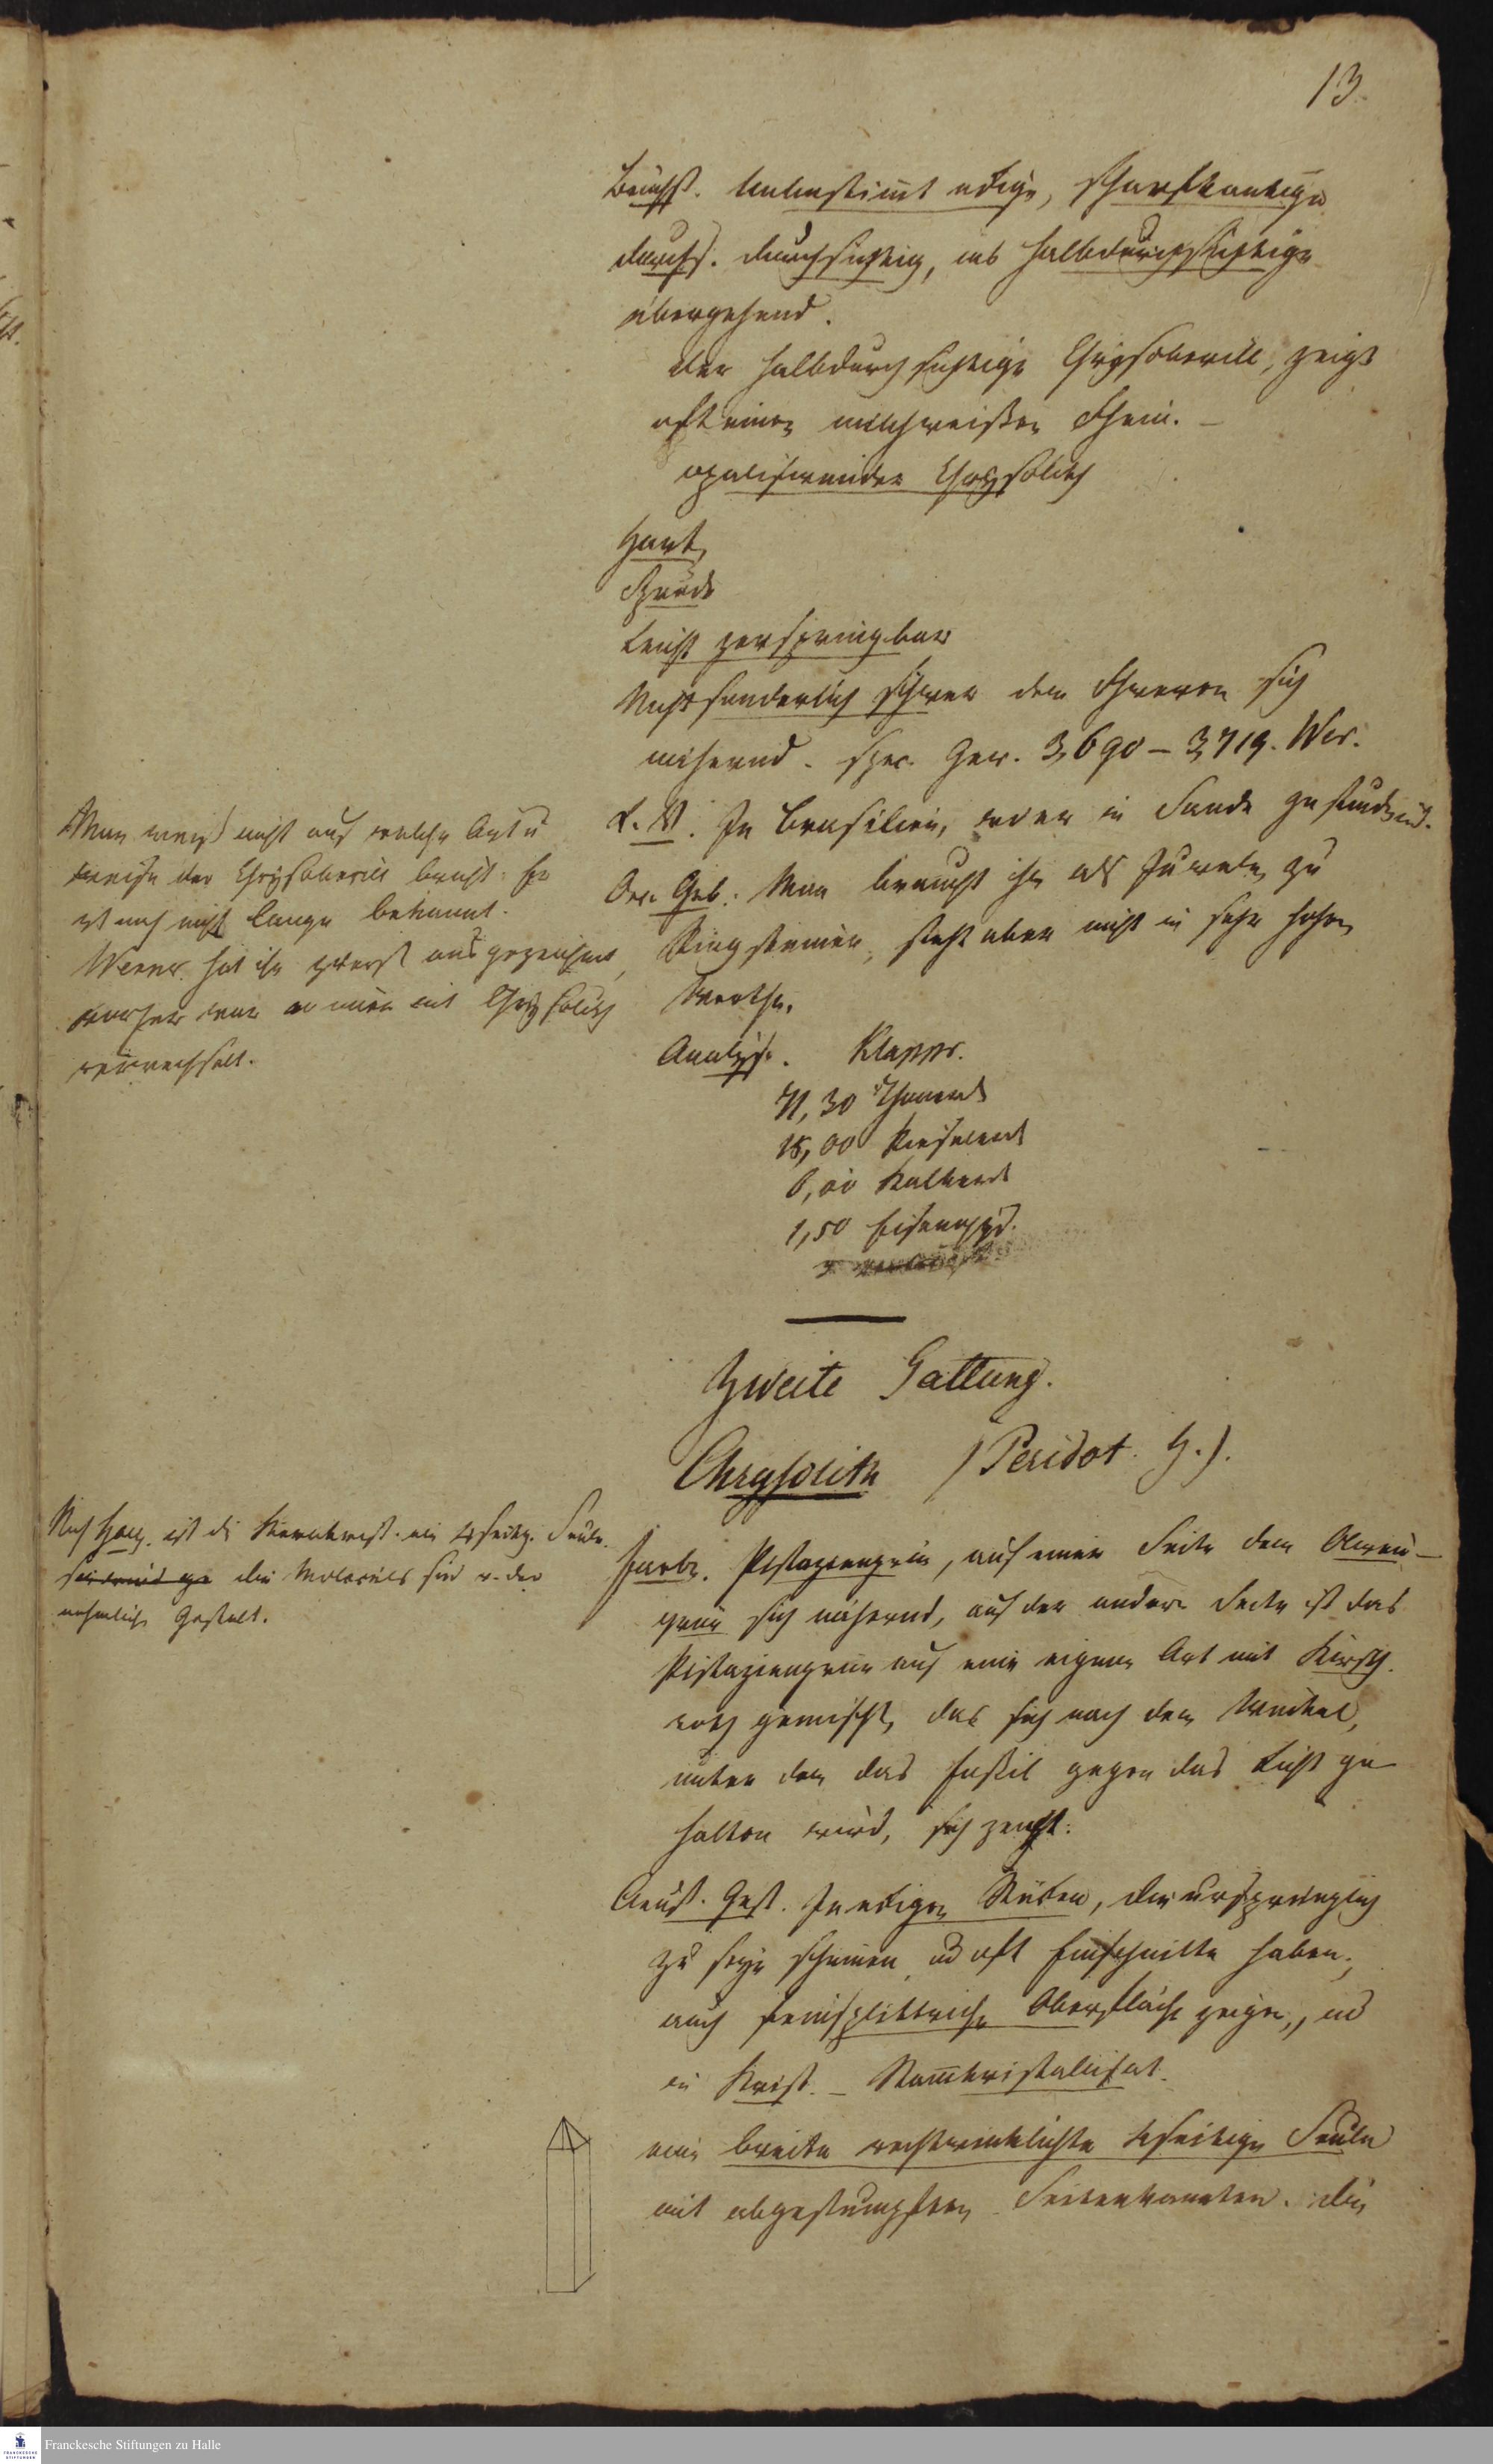 13.
Bruchst. Unbestimt eckige, scharfkantige
durchs. durchsichtig, ins halbdurchsichtige
übergehend.
der halbdurchsichtige Chrysoberill, zeigt
oft einen milchweißen Schein. –
opalisirender Chrysolith
Hart,
Spröde
Leicht zerspringbar
Nicht sonderlich schwer dem Schweren sich
nähernd. spec. Gew. 3,690 – 3,719. Wer.
F. O. In Brasilien, wo er in Sande gefunden wird.
Geb. Man braucht ihn als Juwele, zu
Ringsteinen, steht aber nicht in sehr hohen
Werthe.
Analyse. Klappr.
71,30 Thonerde
18,00 Kieselerde
6,00 Kalkerde
1,50 Eisenoxyd.
Man weiß nicht auf welche Art u
weise der Chrysoberill bricht. Er
ist noch nicht lange bekannt.
Werner hat ihn zuerst ausgezeichnet,
vorher war er immer mit Chrysolith
verwechselt.
Zweite Gattung.
Chrysolith (Peridot. H.).
Nach Hauy. ist die Kernkryst. eine 4seitig. Säule.
die Molecüls sind v. der
nehmlichen Gestalt.
Farbe. Pistaziengrün, auf einer Seite dem Oliven-
grün sich nähernd, auf der andern Seite ist das
Pistaziengrün auf eine eigene Art mit Kirsch
roth gemischt, das sich nach dem Winkel,
unter dem das Foßil gegen das Licht ge
halten wird, sich zeigt.
Aeuß. Gest. In eckigen Stücken, die ursprünglich
zu seyn scheinen, und oft Einschnitte haben,
auch feinsplittriche Oberfläche zeigen, und
in Krist. – Stammkristallisat.
eine breite rechtwinklichte 4seitige Säule
mit abgestumpften Seitenkannten. die
Franckesche Stiftungen zu Halle